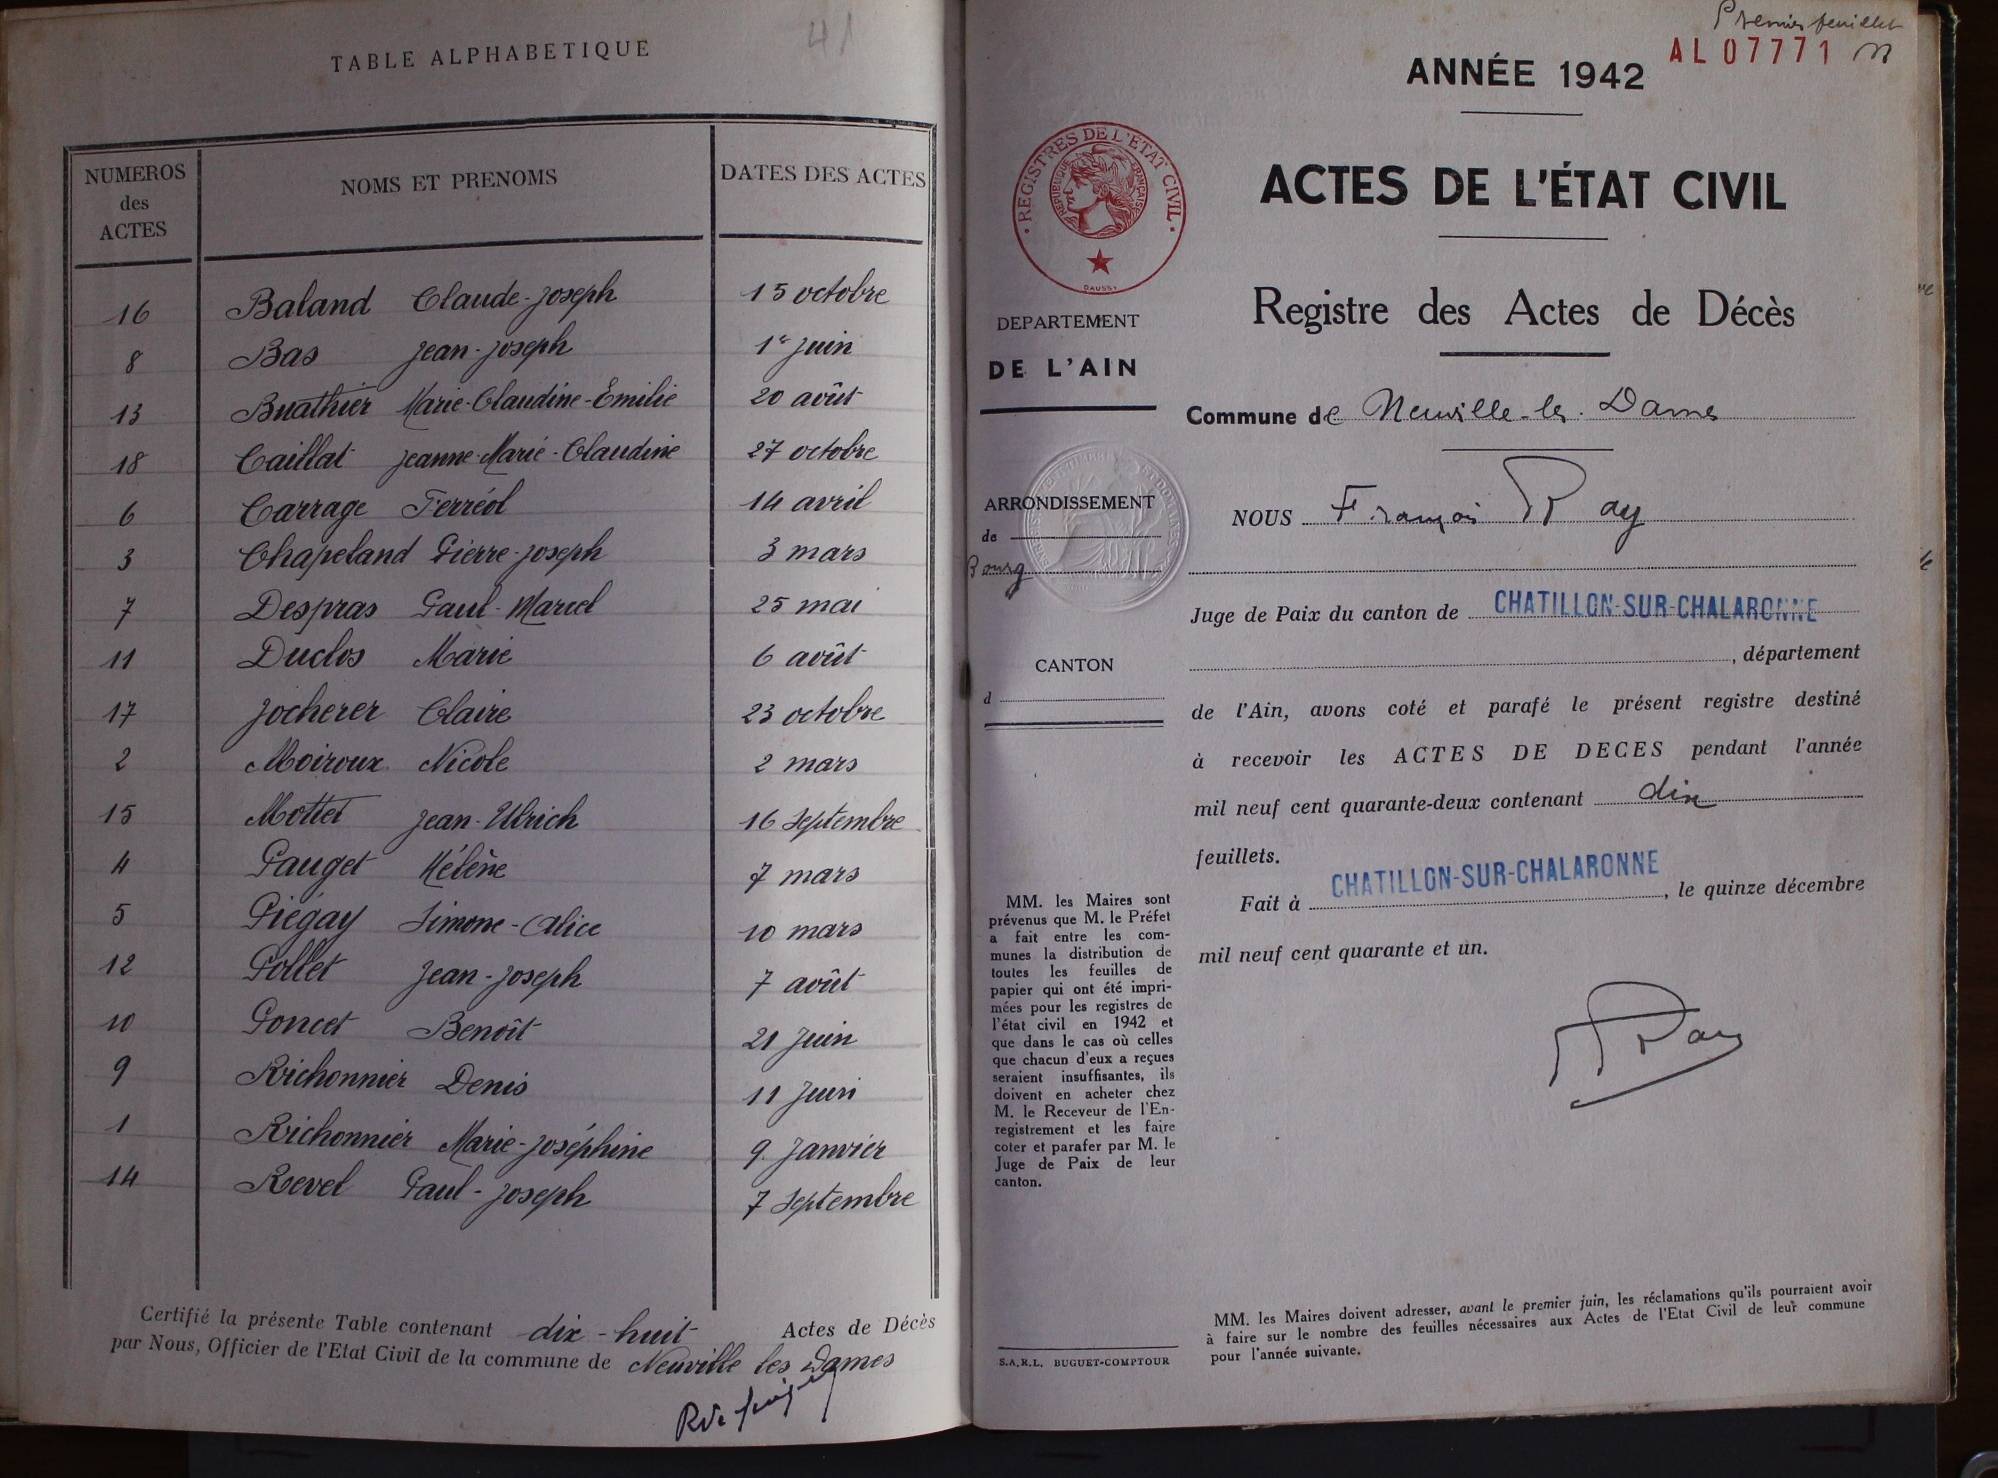 TABLE ALPHABETIQUE
41
NUMEROS des ACTES
NOMS ET PRENOMS
DATES DES ACTES
16 Baland Claude-Joseph 15 octobre
8 Bas Jean-Joseph 1er Juin
13 Buathier Marie-Claudine-Emilie 20 août
18 Caillat Jeanne-Marie-Claudine 27 octobre
6 Carrage Ferréol 14 avril
3 Chapeland Pierre-Joseph 3 mars
7 Despras Paul-Marcel 25 mai
11 Duclos Marie 6 août
17 Jocherer Claire 23 octobre
2 Moiroux Nicole 2 mars
15 Mottet Jean-Ulrich 16 Septembre
4 Pauget Hélène 7 mars
5 Piégay Simone-Alice 10 mars
12 Pollet Jean-Joseph 7 août
10 Poncet Benoît 21 Juin
9 Richonnier Denis 11 Juin
1 Richonnier Marie-Joséphine 9 Janvier
14 Revel Paul-Joseph 7 Septembre
Certifié la présente Table contenant dix-huit Actes de Décès
par Nous, Officier de l'Etat Civil de la commune de Neuville les Dames
Premier feuillet
AL 07771
ANNÉE 1942
REGISTRES DE L'ÉTAT CIVIL
RÉPUBLIQUE FRANÇAISE
DAUSSY
ACTES DE L'ÉTAT CIVIL
Registre des Actes de Décès
DEPARTEMENT
DE L'AIN
Commune de Neuville-les-Dames
ARRONDISSEMENT
de
Bourg
NOUS François Ray
Juge de Paix du canton de CHATILLON-SUR-CHALARONNE
CANTON
d
, département
de l'Ain, avons coté et parafé le présent registre destiné
à recevoir les ACTES DE DECES pendant l'année
mil neuf cent quarante-deux contenant dix
feuillets.
Fait à CHATILLON-SUR-CHALARONNE, le quinze décembre
mil neuf cent quarante et un.
Ray
MM. les Maires sont
prévenus que M. le Préfet
a fait entre les com-
munes la distribution de
toutes les feuilles de
papier qui ont été impri-
mées pour les registres de
l'état civil en 1942 et
que dans le cas où celles
que chacun d'eux a reçues
seraient insuffisantes, ils
doivent en acheter chez
M. le Receveur de l'En-
registrement et les faire
coter et parafer par M. le
Juge de Paix de leur
canton.
S.A.R.L. BUGUET-COMPTOUR
MM. les Maires doivent adresser, avant le premier juin, les réclamations qu'ils pourraient avoir
à faire sur le nombre des feuilles nécessaires aux Actes de l'Etat Civil de leur commune
pour l'année suivante.